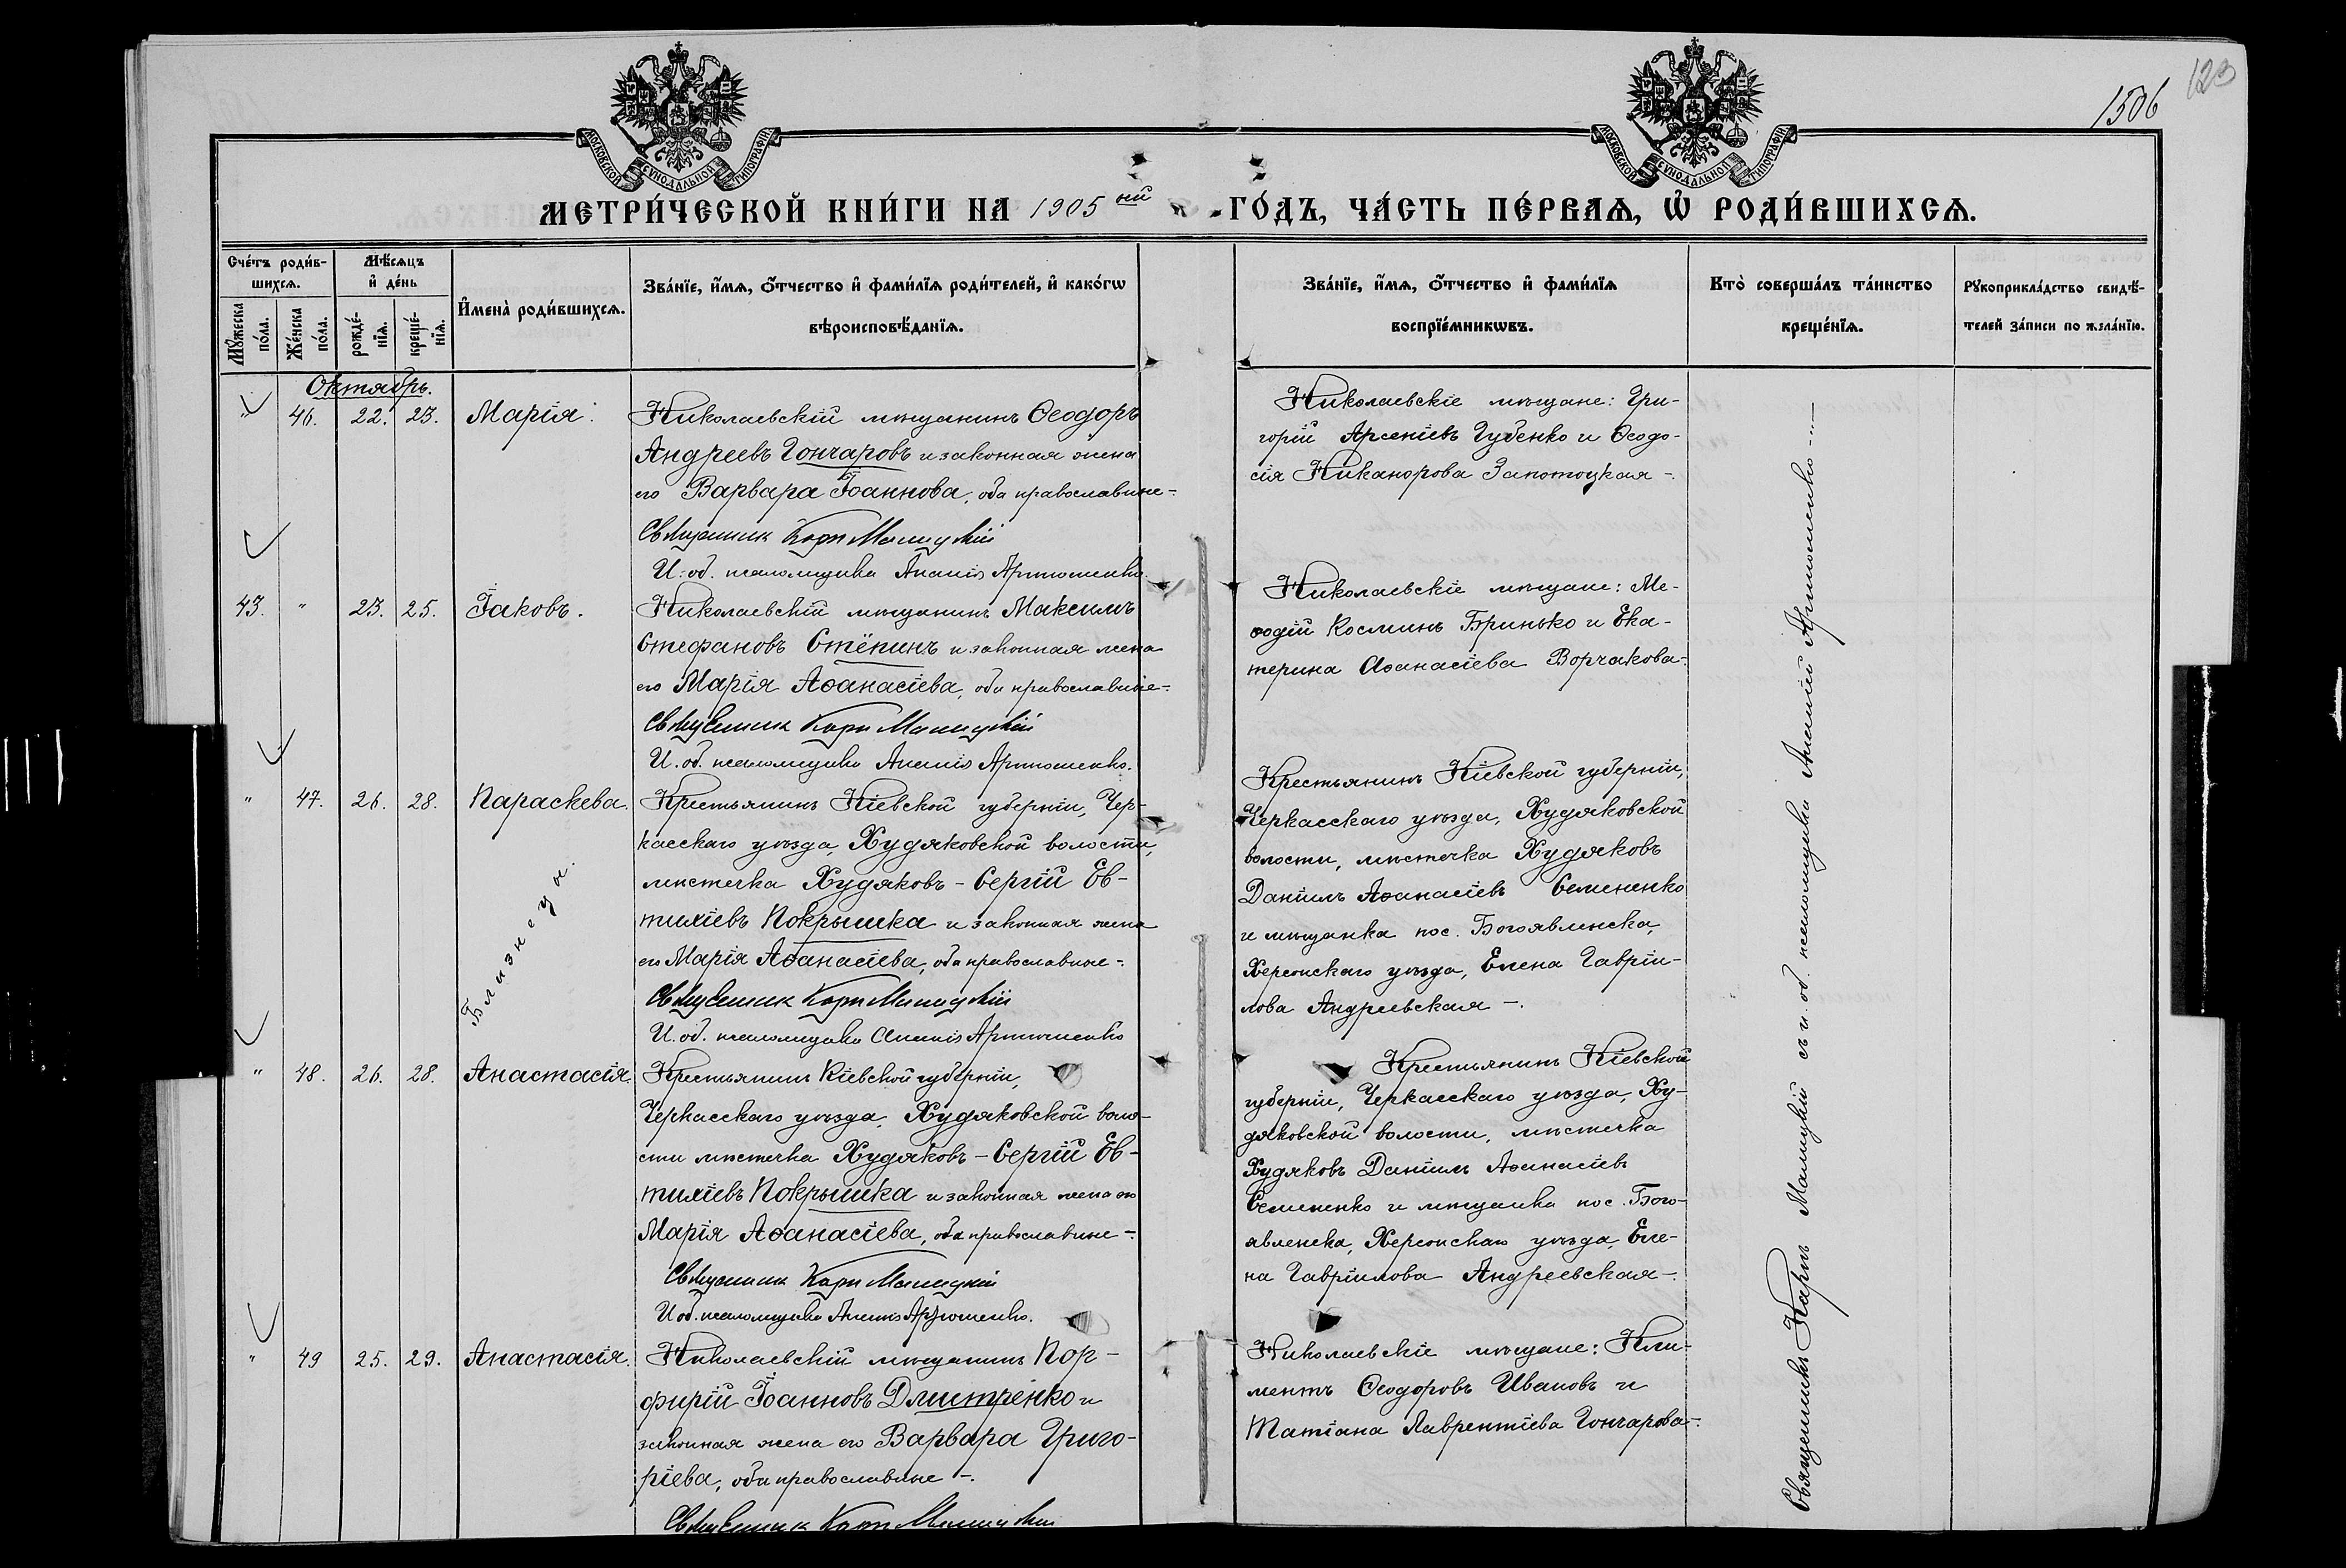 1506
123
МОСКОВСКОЙ СѴНОДАЛЬНОЙ ТИПОГРАФІИ
МОСКОВСКОЙ СѴНОДАЛЬНОЙ ТИПОГРАФІИ
МЕТРИ́ЧЕСКОЙ КНИ́ГИ НА 1905 ый ГО́ДЪ, ЧА́СТЬ ПЕ́РВАѦ, Ѽ РОДИ́ВШИХСѦ.
Сче́тъ роди́в-
шихсѧ.
Мꙋ́жеска по́ла.
Же́нска по́ла.
Мѣ́сѧцъ
и҆ де́нь
рожде́-
нїѧ.
креще́-
нїѧ.
И҆мена̀ роди́вшихсѧ.
Зва́нїе, и҆́мѧ, ѻ҆́тчество и҆ фами́лїѧ роди́телей, и҆ како́гѡ
вѣроисповѣ́данїѧ.
Зва́нїе, и҆́мѧ, ѻ҆́тчество и҆ фами́лїѧ
воспрїе́мникѡвъ.
Кто̀ соверша́лъ та́инство
креще́нїѧ.
Рꙋкоприкла́дство свидѣ́-
телей за́писи по жела́нїю.
Октябрь.
" 46. 22. 23. Марія.
Николаевскій мѣщанинъ Ѳеодоръ
Андреевъ Гончаровъ и законная жена
его Варвара Іоаннова, оба православные -
Священник Карп Малицкій
И. об. псаломщика Ананій Артюшенко.
Николаевскіе мѣщане: Гри-
горій Арсеніевъ Губенко и Ѳеодо-
сія Никанорова Запотоцкая -.
43. " 23. 25. Іаковъ.
Николаевскій мѣщанинъ Максимъ
Стефановъ Стёпинъ и законная жена
его Марія Аѳанасіева, оба православные -
Священник Карп Малицкій
И. об. псаломщика Ананій Артюшенко.
Николаевскіе мѣщане: Ме-
ѳодій Косминъ Бринько и Ека-
терина Аѳанасіева Ворчакова -.
" 47. 26. 28. Параскева.
Близнецы.
Крестьянинъ Кіевской губерніи, Чер-
касскаго уѣзда, Худяковской волости,
мѣстечка Худяковъ - Сергій Ев-
тихіевъ Покрышка и законная жена
его Марія Аѳанасіева, оба православные -
Священник Карп Малицкій
И. об. псаломщика Ананій Артюшенко
Крестьянинъ Кіевской губерніи,
Черкасскаго уѣзда, Худяковской
волости, мѣстечка Худяковъ
Даніилъ Аѳанасіевъ Семененко
и мѣщанка пос. Богоявленска,
Херсонскаго уѣзда, Елена Гавріи-
лова Андреевская -.
" 48. 26. 28. Анастасія.
Крестьянинъ Кіевской губерніи,
Черкасскаго уѣзда, Худяковской воло-
сти мѣстечка Худяковъ - Сергій Ев-
тихіевъ Покрышка и законная жена его
Марія Аѳанасіева, оба православные -.
Священник Карп Малицкій
И об. псаломщика Ананій Артюшенко.
Крестьянинъ Кіевской
губерніи, Черкасскаго уѣзда, Ху-
дяковской волости, мѣстечка
Худяковъ Даніилъ Аѳанасіевъ
Семененко и мѣщанка пос. Бого-
явленска, Херсонскаго уѣзда, Еле-
на Гавріилова Андреевская -.
" 49 25. 29. Анастасія.
Николаевскій мѣщанинъ Пор-
фирій Іоанновъ Дмитренко и
законная жена его Варвара Григо-
ріева, оба православные -.
Священник Карп Малицкій
Николаевскіе мѣщане: Кли-
ментъ Ѳеодоровъ Ивановъ и
Татіана Лаврентіева Гончарова -.
Священникъ Карпъ Малицкій съ и. об. псаломщика Ананіей Артюшенко